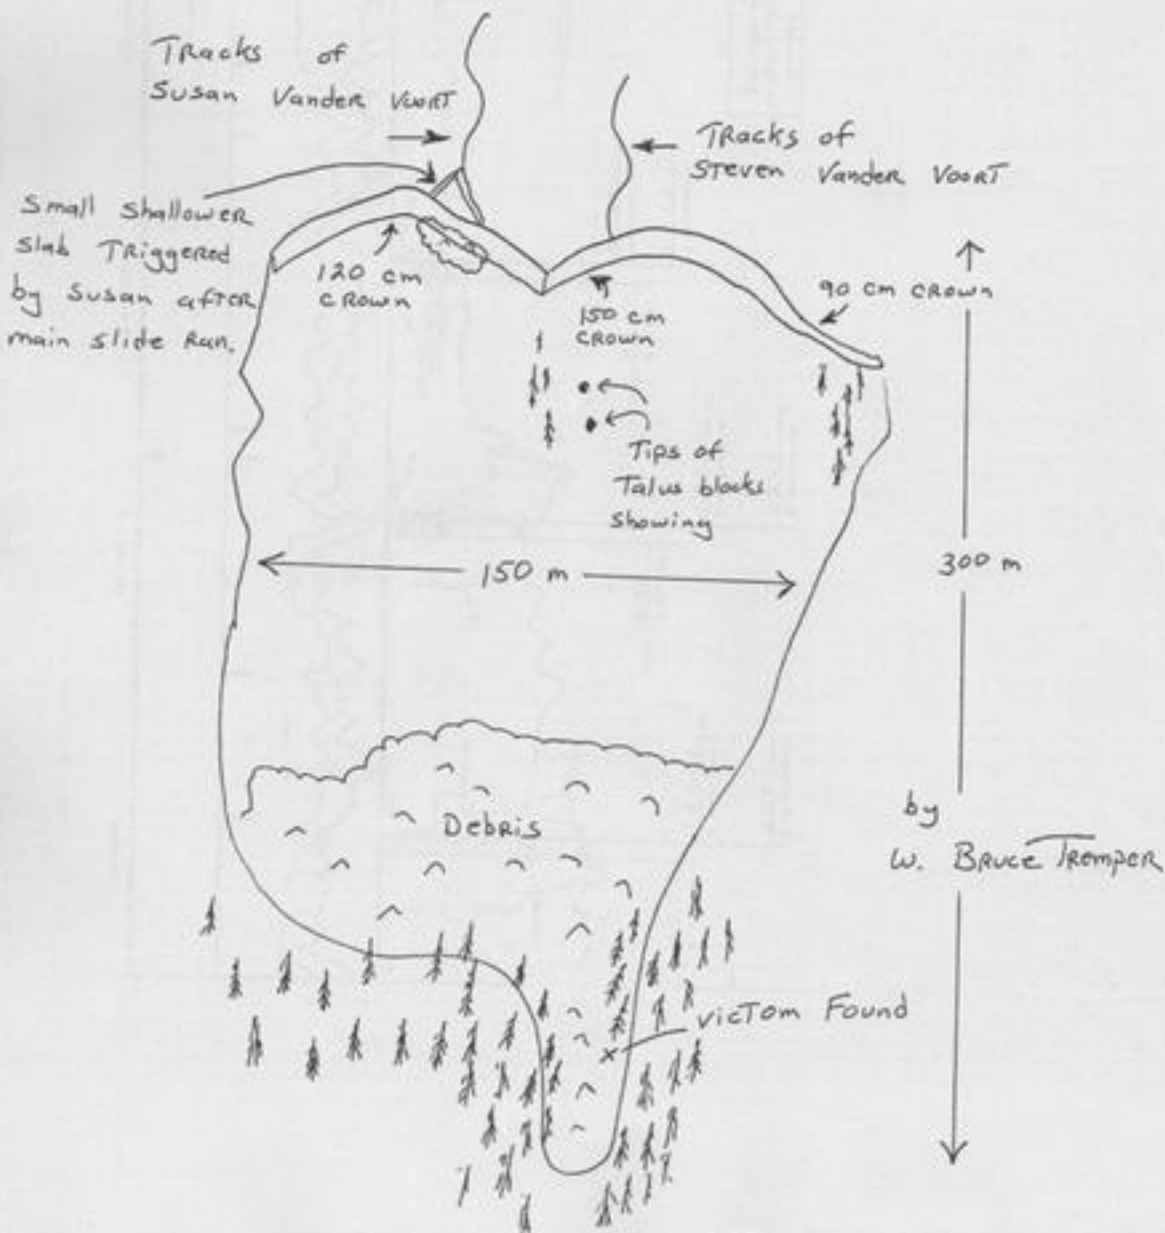 Tracks of
Susan Vander Voort
Tracks of
Steven Vander Voort
Small shallower
slab Triggered
by Susan after
main slide Ran.
120 cm
crown
150 cm
crown
90 cm crown
Tips of
Talus blocks
showing
150 m
300 m
Debris
by
W. Bruce Tremper
Victom Found
x